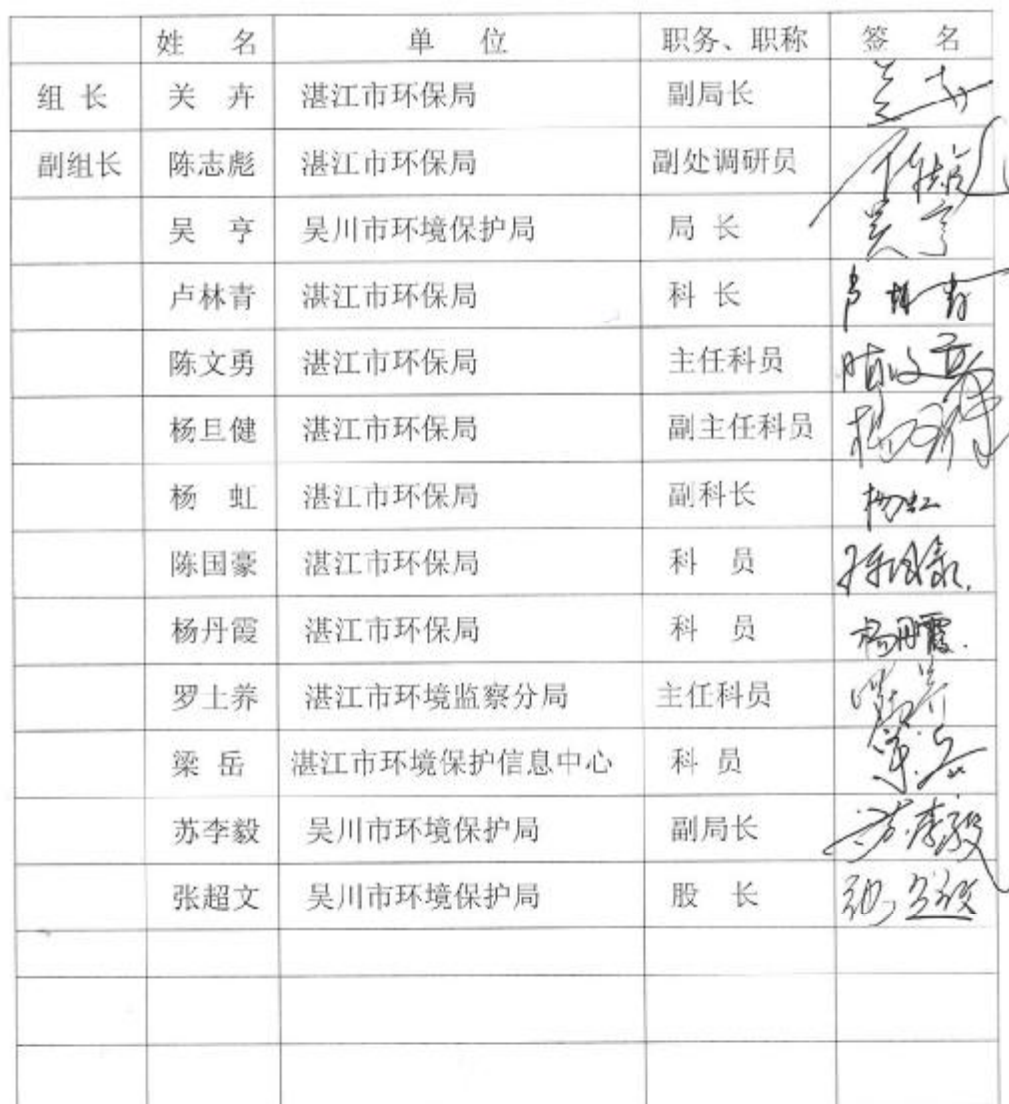 姓 名 单 位 职务、职称 签 名
组 长 关 卉 湛江市环保局 副局长
副组长 陈志彪 湛江市环保局 副处调研员
吴 亨 吴川市环境保护局 局 长 吴 亨
卢林青 湛江市环保局 科 长 卢林青
陈文勇 湛江市环保局 主任科员 陈文勇
杨旦健 湛江市环保局 副主任科员
杨 虹 湛江市环保局 副科长 杨虹
陈国豪 湛江市环保局 科 员 陈国豪
杨丹霞 湛江市环保局 科 员 杨丹霞
罗土养 湛江市环境监察分局 主任科员
梁 岳 湛江市环境保护信息中心 科 员 梁岳
苏李毅 吴川市环境保护局 副局长 苏李毅
张超文 吴川市环境保护局 股 长